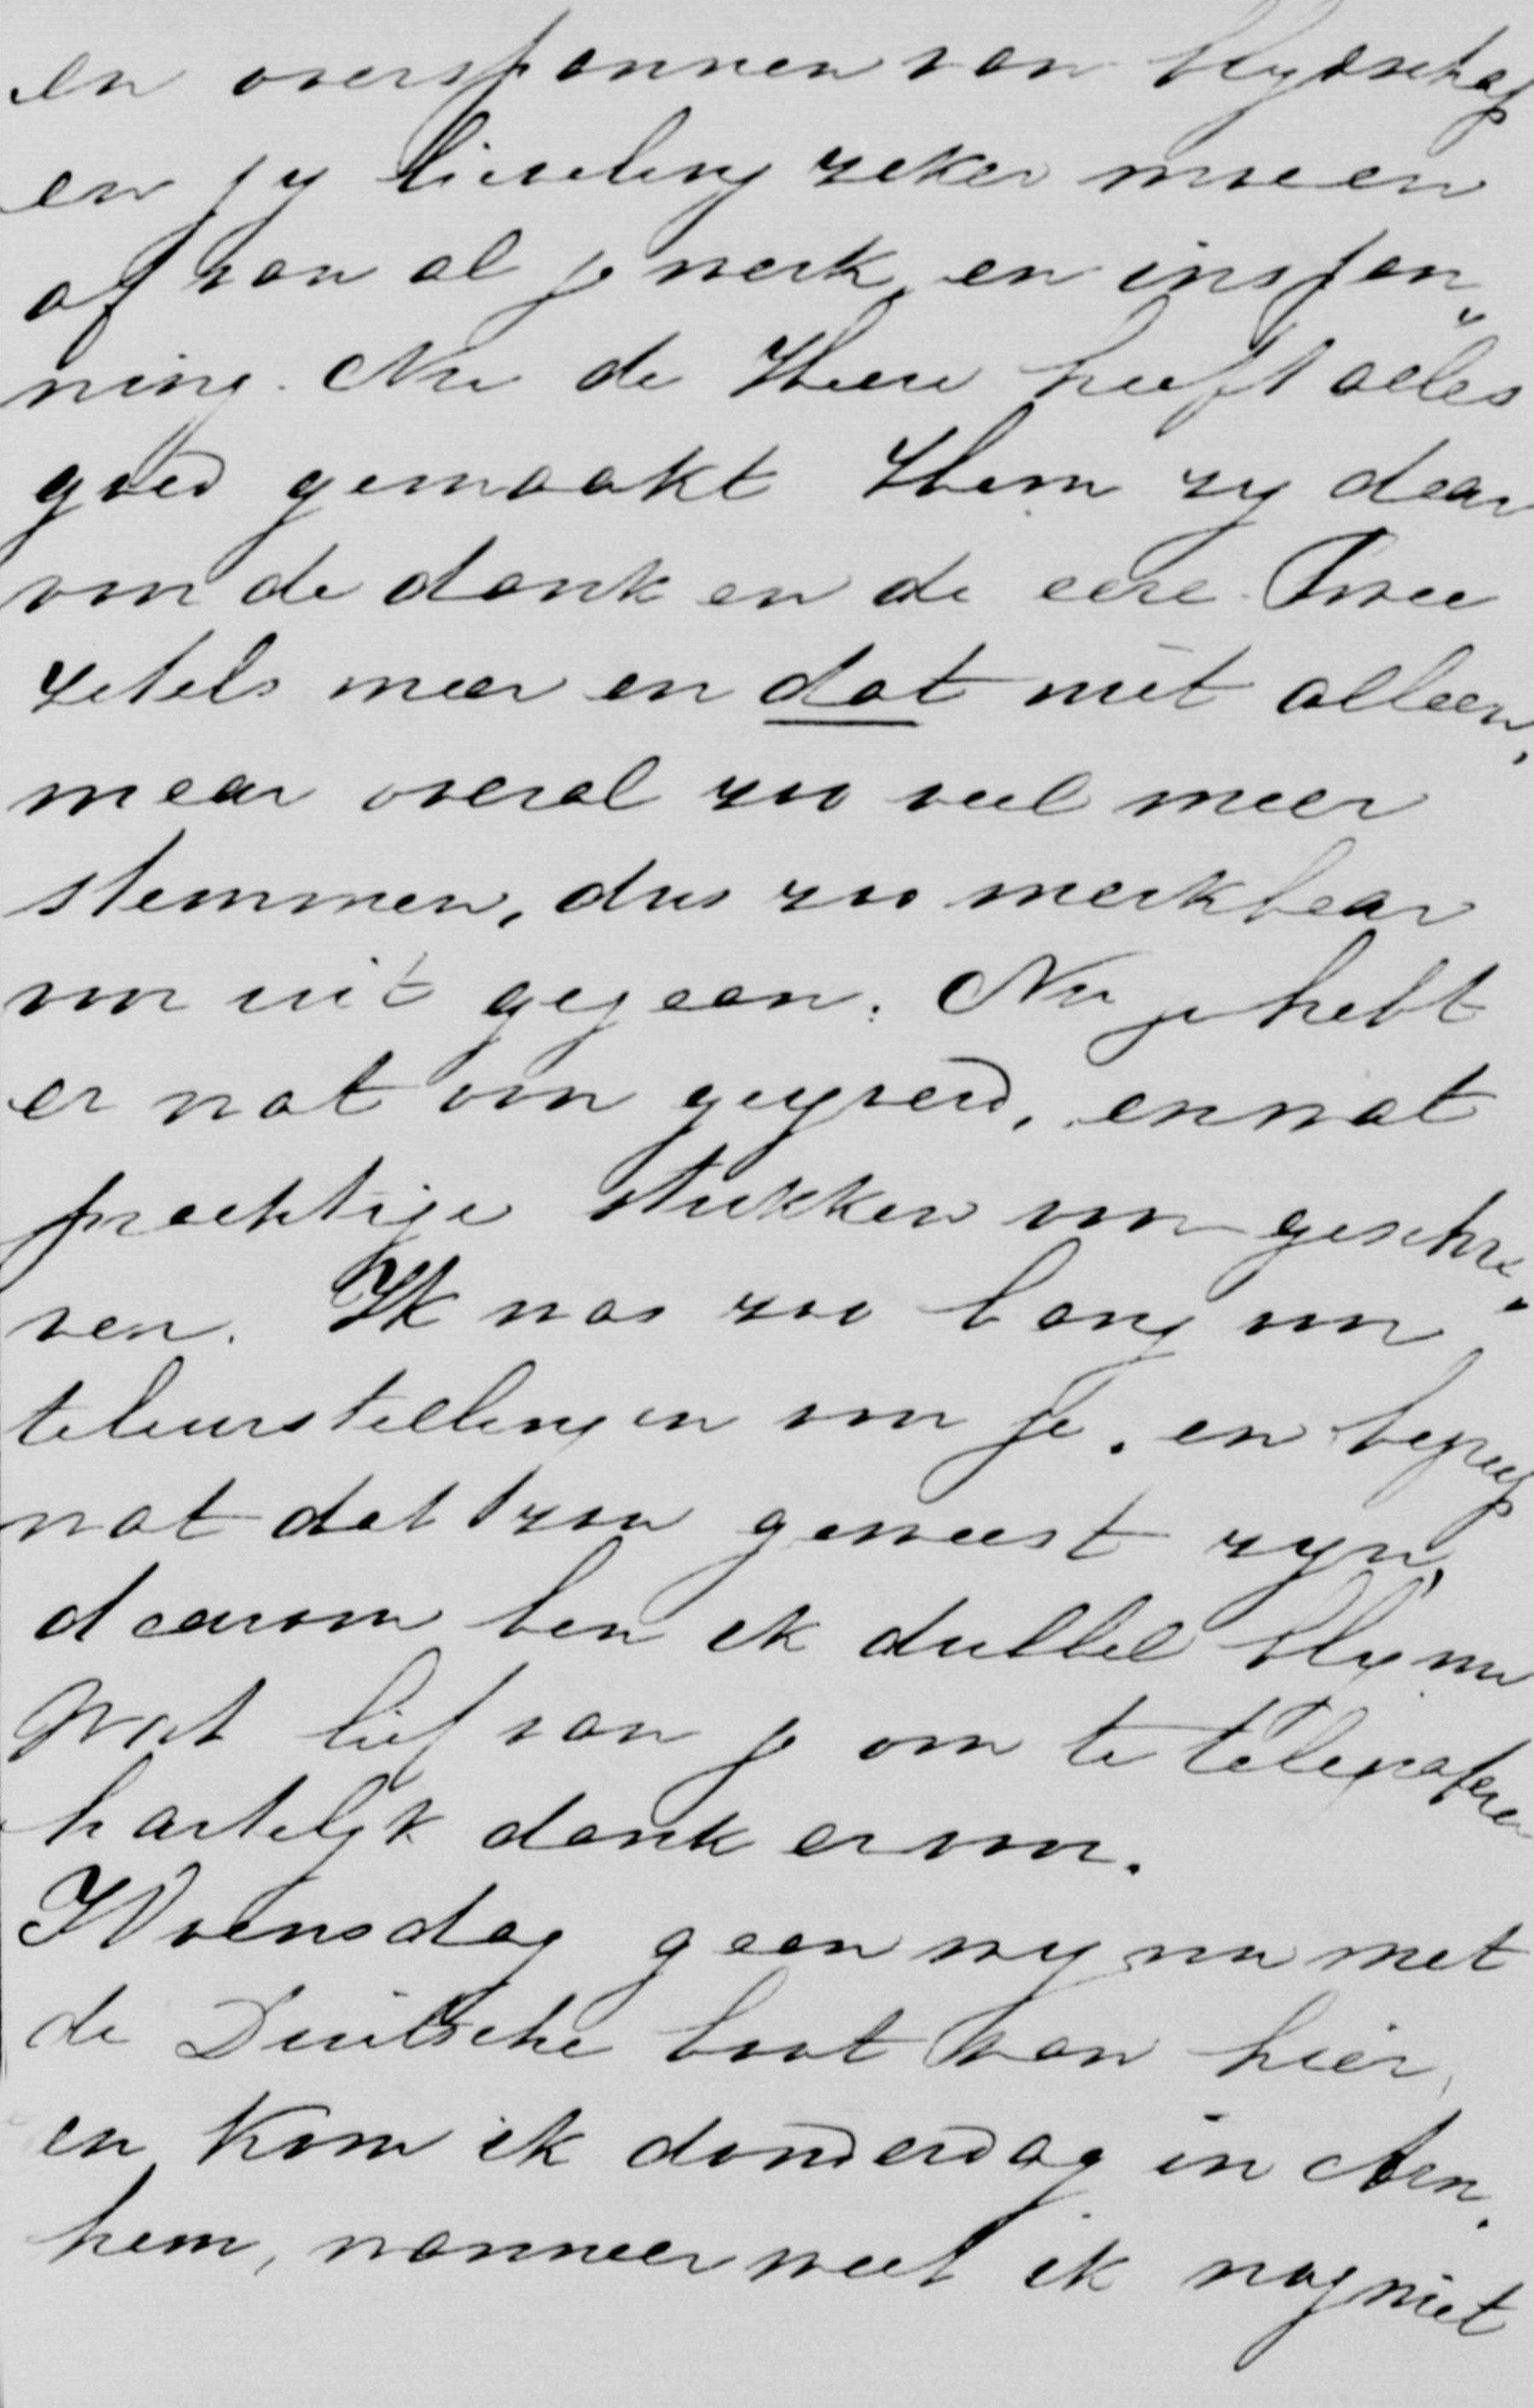 en overspannen van blydschap
en jy lieveling zeker moe en
af van al je werk en inspan„
ning. Nu de Heere heeft alles
goed gemaakt Hem zy daar
voor de dank en de eere. Twee
zetels meer en dat niet alleen,
maar overal zoo veel meer
stemmen, dus zoo merkbaar
voor uit gegaan. Nu je hebt
er wat om gezwoegd, en wat
prachtige stukken voor geschre„
ven. Ik was zoo bang voor
teleurstellingen voor je, en begreep
wat dat zou geweest zyn,
daarom ben ik dubbel bly nu
Wat lief van je om te telegrafeeren
hartelyk dank ervoor.
Woensdag gaan wy nu met
de Duitsche boot van hier,
en kom ik donderdag in Arn„
hem, wanneer weet ik nog niet